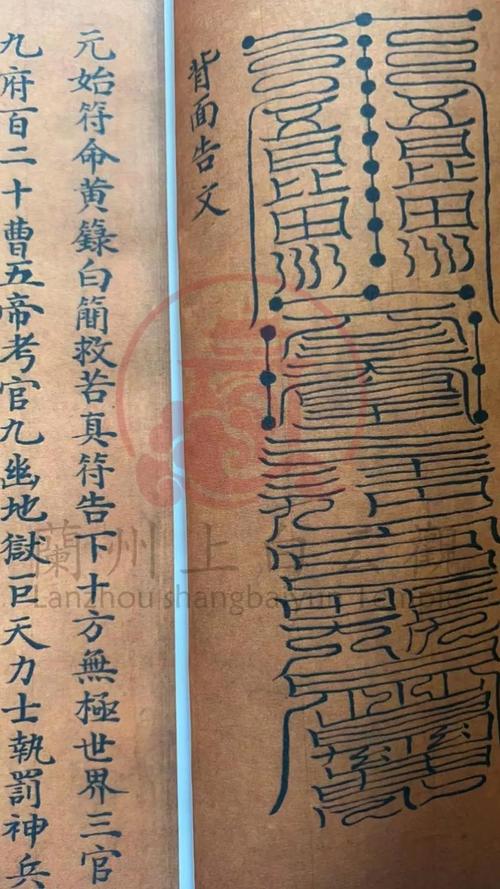 背面告文
元始符命黄籙白簡救苦真符告下十方無極世界三官
九府百二十曹五帝考官九幽地獄巨天力士執罰神兵
蘭州上白雲觀
Lanzhou shangbaiyun Temple